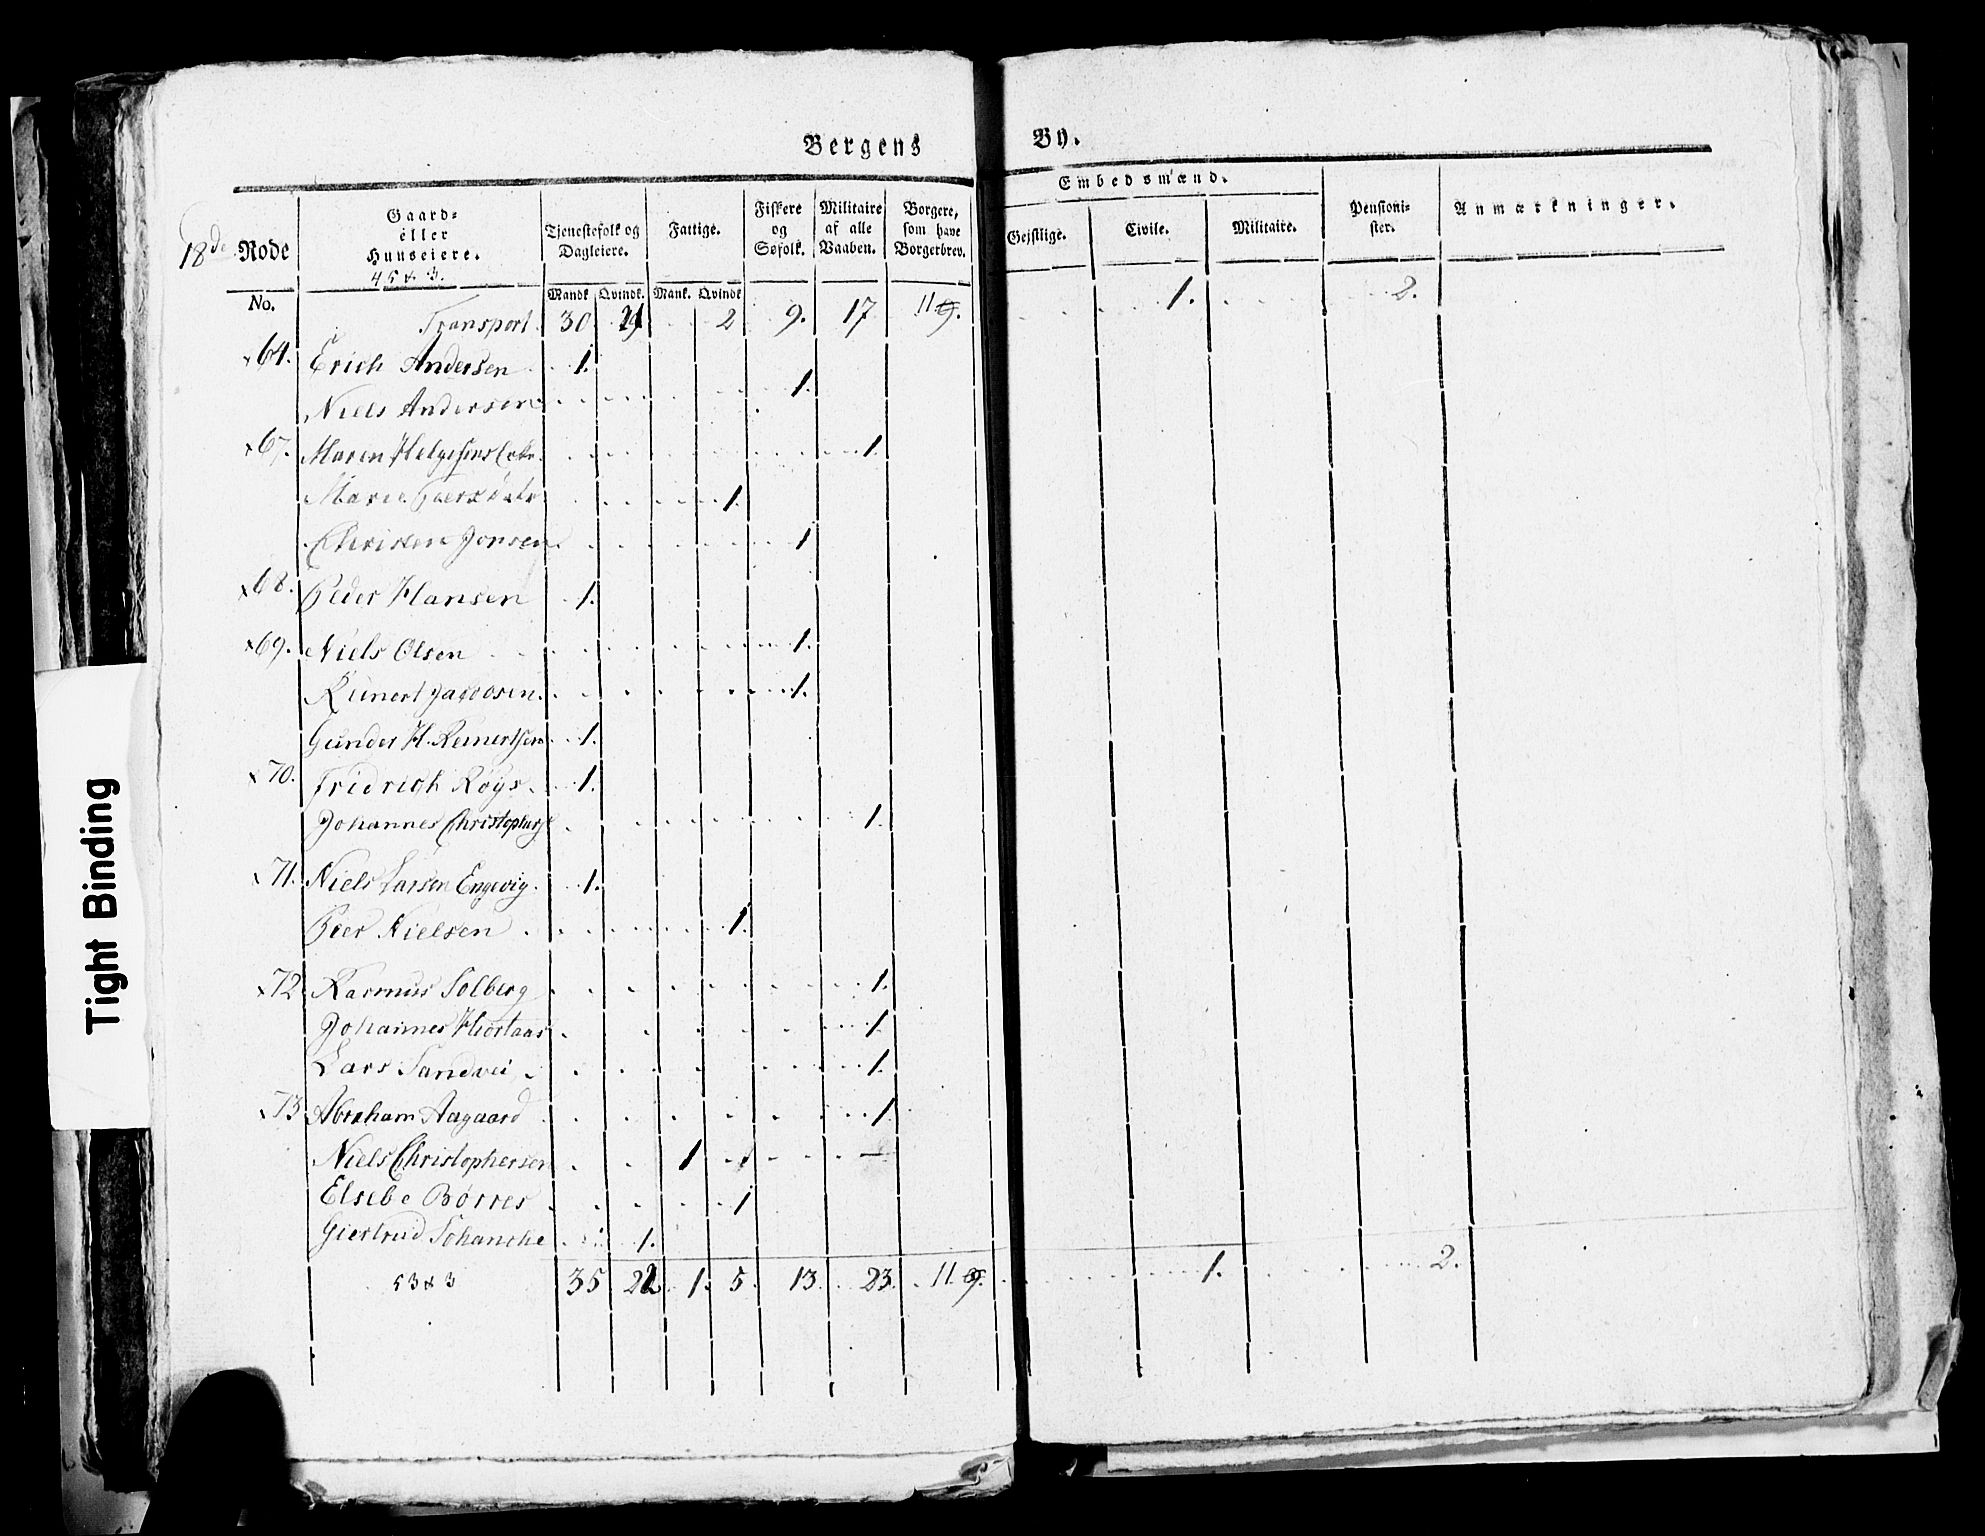 Bergens By.
18de Rode
Gaard- eller Huuseiere.
45 & 3.
Tjenestefolk og Dagleiere.
Fattige.
Fiskere og Søfolk.
Militaire af alle Vaaben.
Borgere, som have Borgerbrev.
Embedsmænd.
Gejstlige.
Civile.
Militaire.
Pensionister.
Anmærkninger.
No.
Mandk. Qvindk. Mank. Qvindk.
Transport. 30 21 2 9. 17 11 1. 2.
64. Erich Andersen 1.
Niels Andersen 1.
67. Maren 1
Marie 1.
Christen Jonsen 1
68. Peder Hansen 1.
69. Niels Olsen 1.
Reinert Jacobsen. 1.
Gunder H. Reinertsen 1.
70. Fridrich Røys. 1.
Johannes 1.
71. Niels Larsen Engevig. 1.
Peer Nielsen 1.
72 Rasmus Solberg 1.
Johannes 1
Lars Sandvei 1.
73 Abraham Aagaard 1
Niels Christophersen 1 1
Elsebe Børres 1
Giertrud Schanche 1.
53 & 3 35 22 1. 5. 13. 23. 11. 1. 2.
Tight Binding